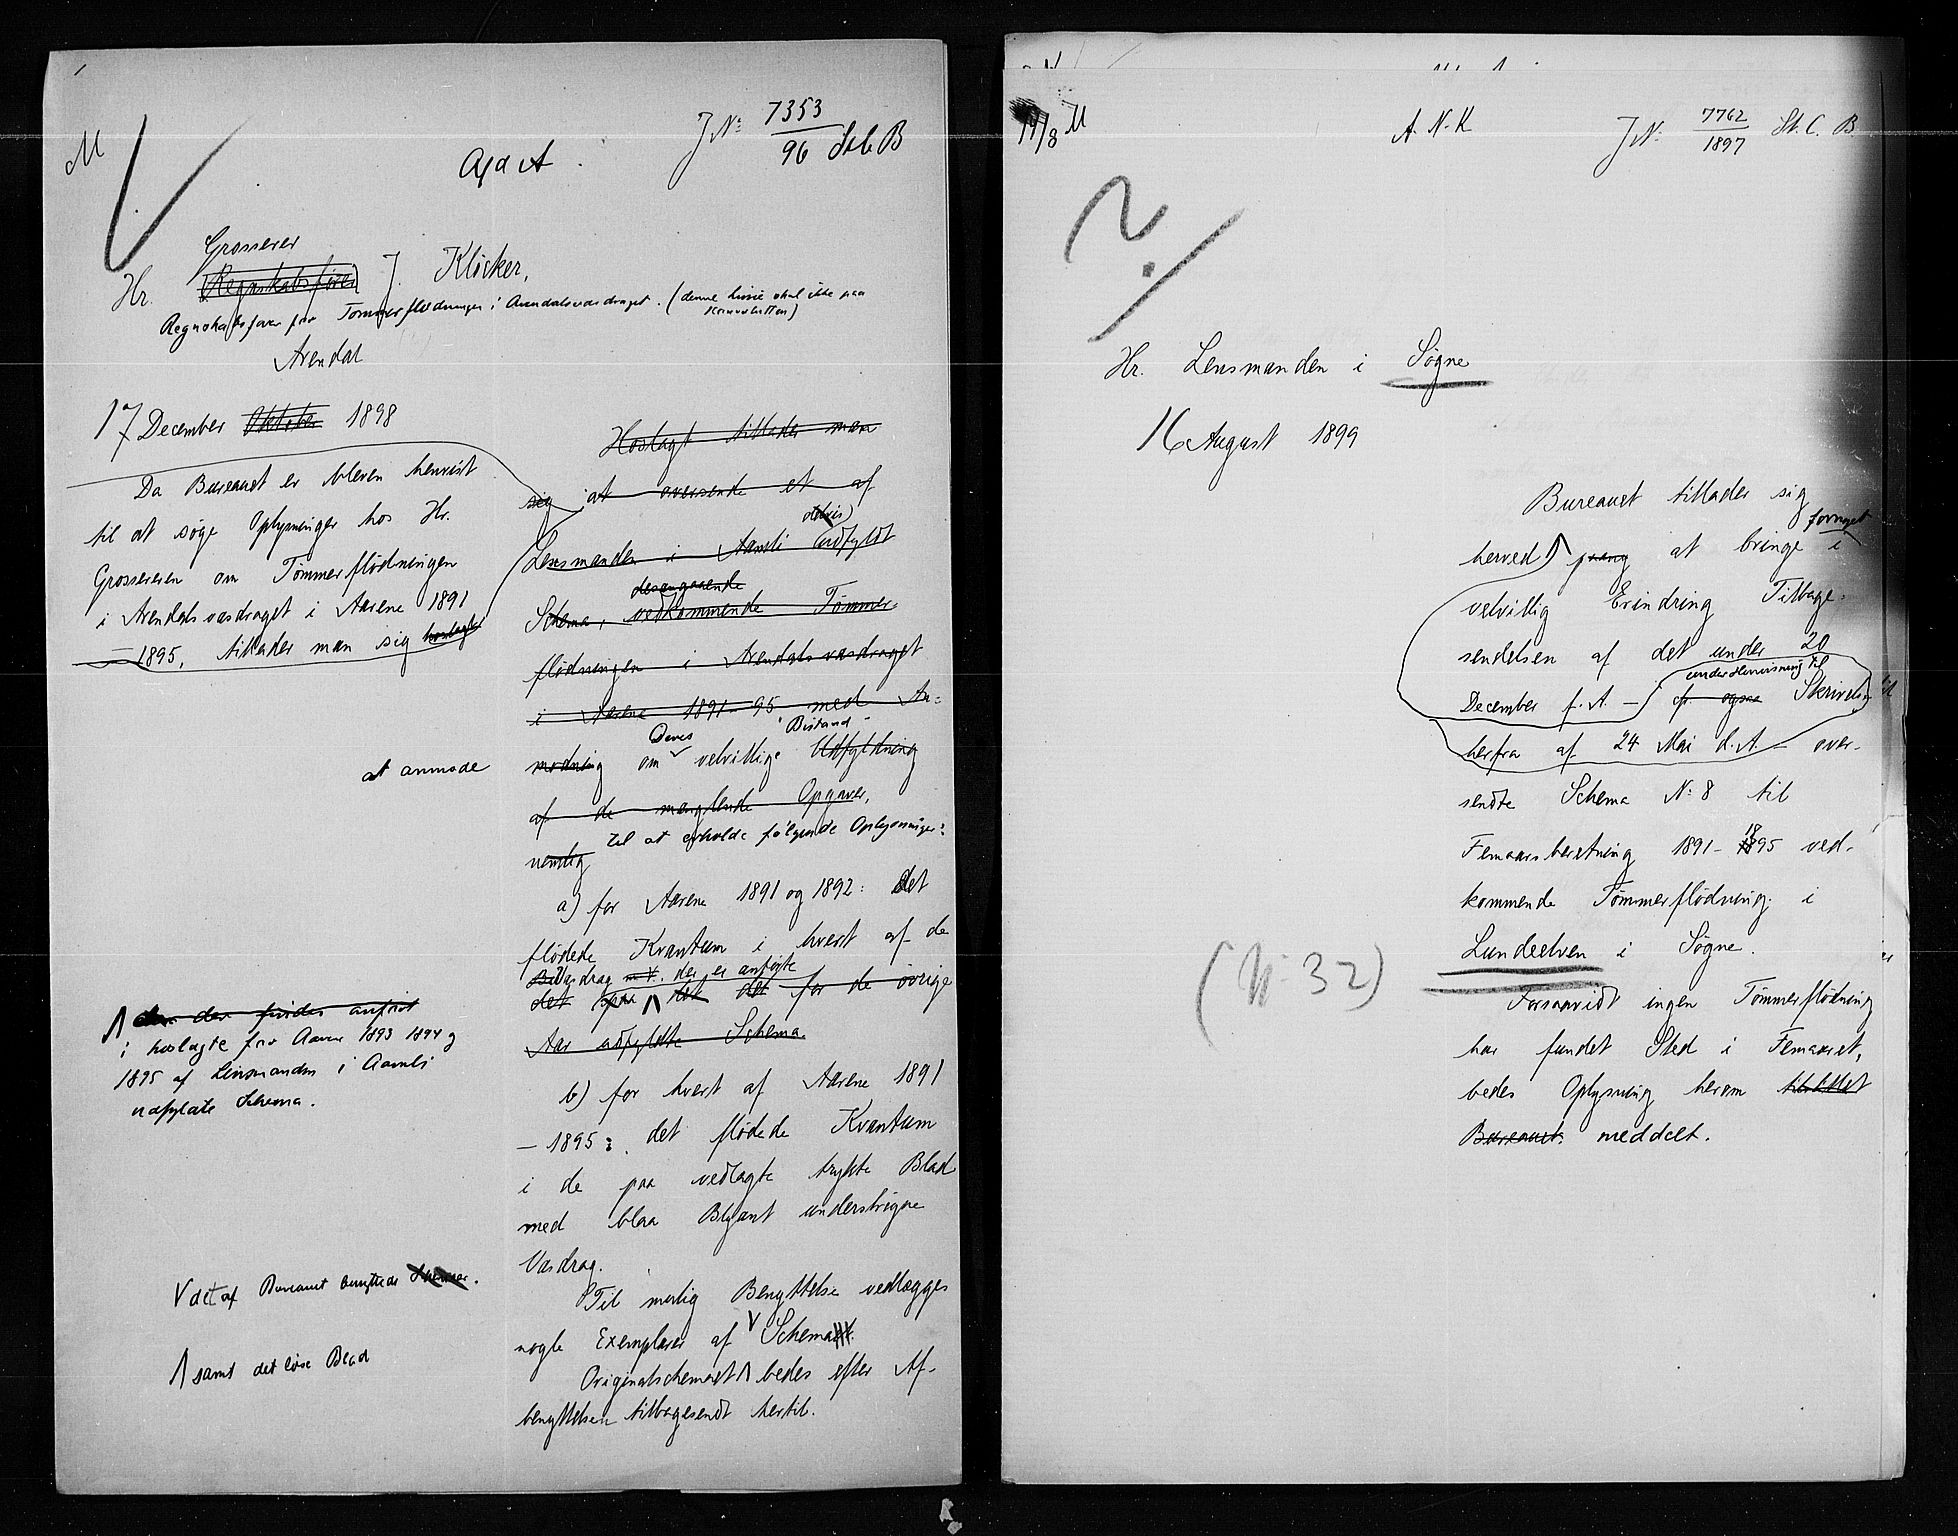 M
J№ 7353/96 StCB
Hr. Grosserer
Regnskabsfører J. Klöcker,
Regnskabsfører for Tømmerflødningen i Arendalsvasdraget. (denne linie skal ikke paa
Konvolutten)
Arendal
17 December Oktober 1898
Da Bureauet er bleven henvist
til at søge Oplysninger hos Hr.
Grossereren om Tømmerflødningen
i Arendalsvasdraget i Aarene 1891
— 1895, tillader man sig hoslagt
at anmode
der findes anført
i hoslagte for Aarene 1893 1894 og
1895 af Lensmanden i Aamli
udfyldte Schema.
V det af Bureauet benyttede Schema.
samt det løse Blad
Hoslagt tillader man
sig at oversende et af
delvis
Lensmanden i Aamli udfyldt
desangaaende
Schema, vedkommende Tømmer-
flødningen i Arendalsvasdraget
i Aarene 1891-95 med An-
Deres Bistand
modning om velvillig Udfyldning
af de manglende Opgaver,
til at erholde følgende Oplysninger:
nemlig
a) for Aarene 1891 og 1892: det
flødede Kvantum i hvert af de
Vasdrag der er anførte
det paa det for de øvrige
Aar udfyldte Schema.
b) for hvert af Aarene 1891
— 1895: det flødede Kvantum
i de paa vedlagte trykte Blad
med blaa Blyant understrøgne
Vasdrag.
Til mulig Benyttelse vedlægges
nogle Exemplarer af V Schemaet.
Originalschemaet bedes efter Af-
benyttelsen tilbagesendt hertil.
19/8 M
A.N.K
J№ 7762/1897 St.C.B.
Hr. Lensmanden i Søgne
16 August 1899
Bureauet tillader sig
fornyet
herved paany at bringe i
velvillig Erindring Tilbage-
sendelsen af det under 20
under Henvisning til
December f.A. — cfr. ogsaa Skrivelse
herfra af 24 Mai d.A. — over-
sendte Schema №8 til
Femaarsberetning 1891-1895 ved-
kommende Tømmerflødning i
Lundeelven i Søgne.
(№ 32)
Forsaavidt ingen Tømmerflødning
har fundet Sted i Femaaret,
bedes Oplysning herom tilstillet
Bureauet. meddelt.